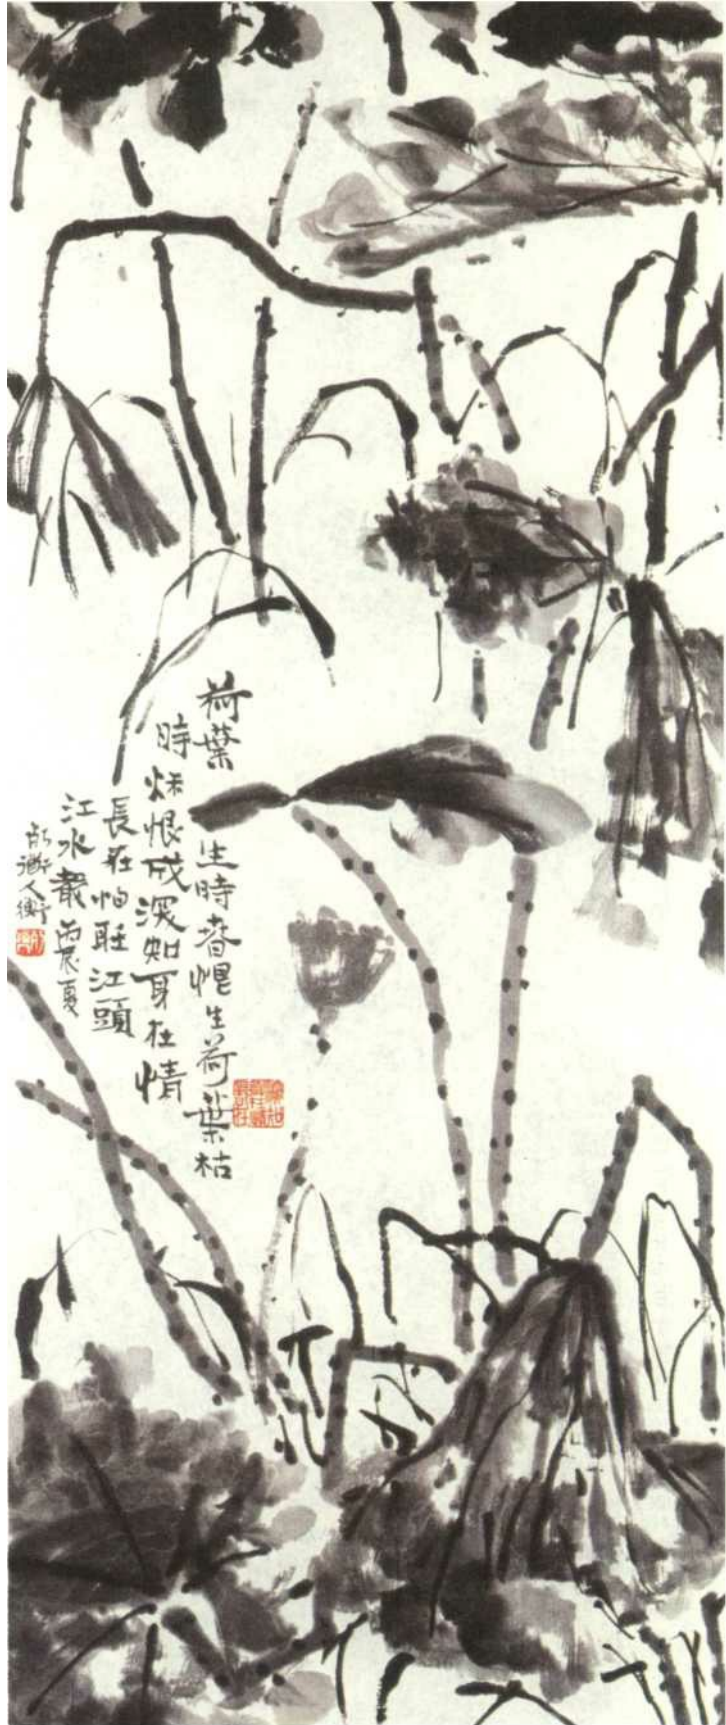 荷葉生時春恨生荷葉枯
時秋恨成深知身在情
長在悵望江頭
江水聲 丙辰夏
深知身在情長在